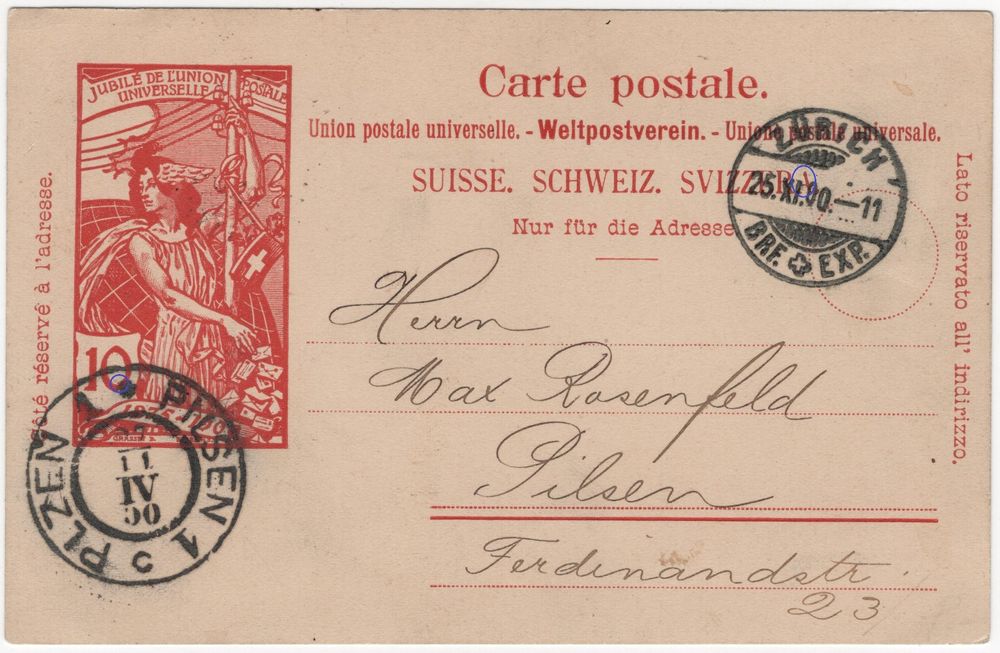 Carte postale.
Union postale universelle. - Weltpostverein. - Unione postale universale.
SUISSE. SCHWEIZ. SVIZZERA
Nur für die Adresse
Côté réservé à l'adresse.
Lato riservato all' indirizzo.
JUBILÉ DE L'UNION
POSTALE
UNIVERSELLE
10
GRASSET
ZÜRICH
25.XI.00.-11
BRF. EXP.
PILSEN 1
PLZEN 1
11
IV
00
Herrn
Max Rosenfeld
Pilsen
Ferdinandstr.
23